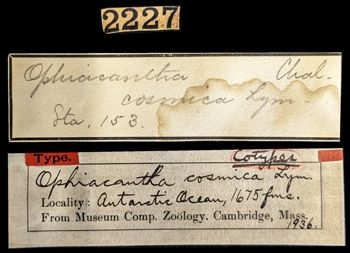 2227
Ophiacantha Chal.
cosmica Lym.
Sta. 153.
Type. Cotypes
Ophiacantha cosmica Lym.
Locality: Antarctic Ocean, 1675 fms.
From Museum Comp. Zoölogy, Cambridge, Mass.
1936.